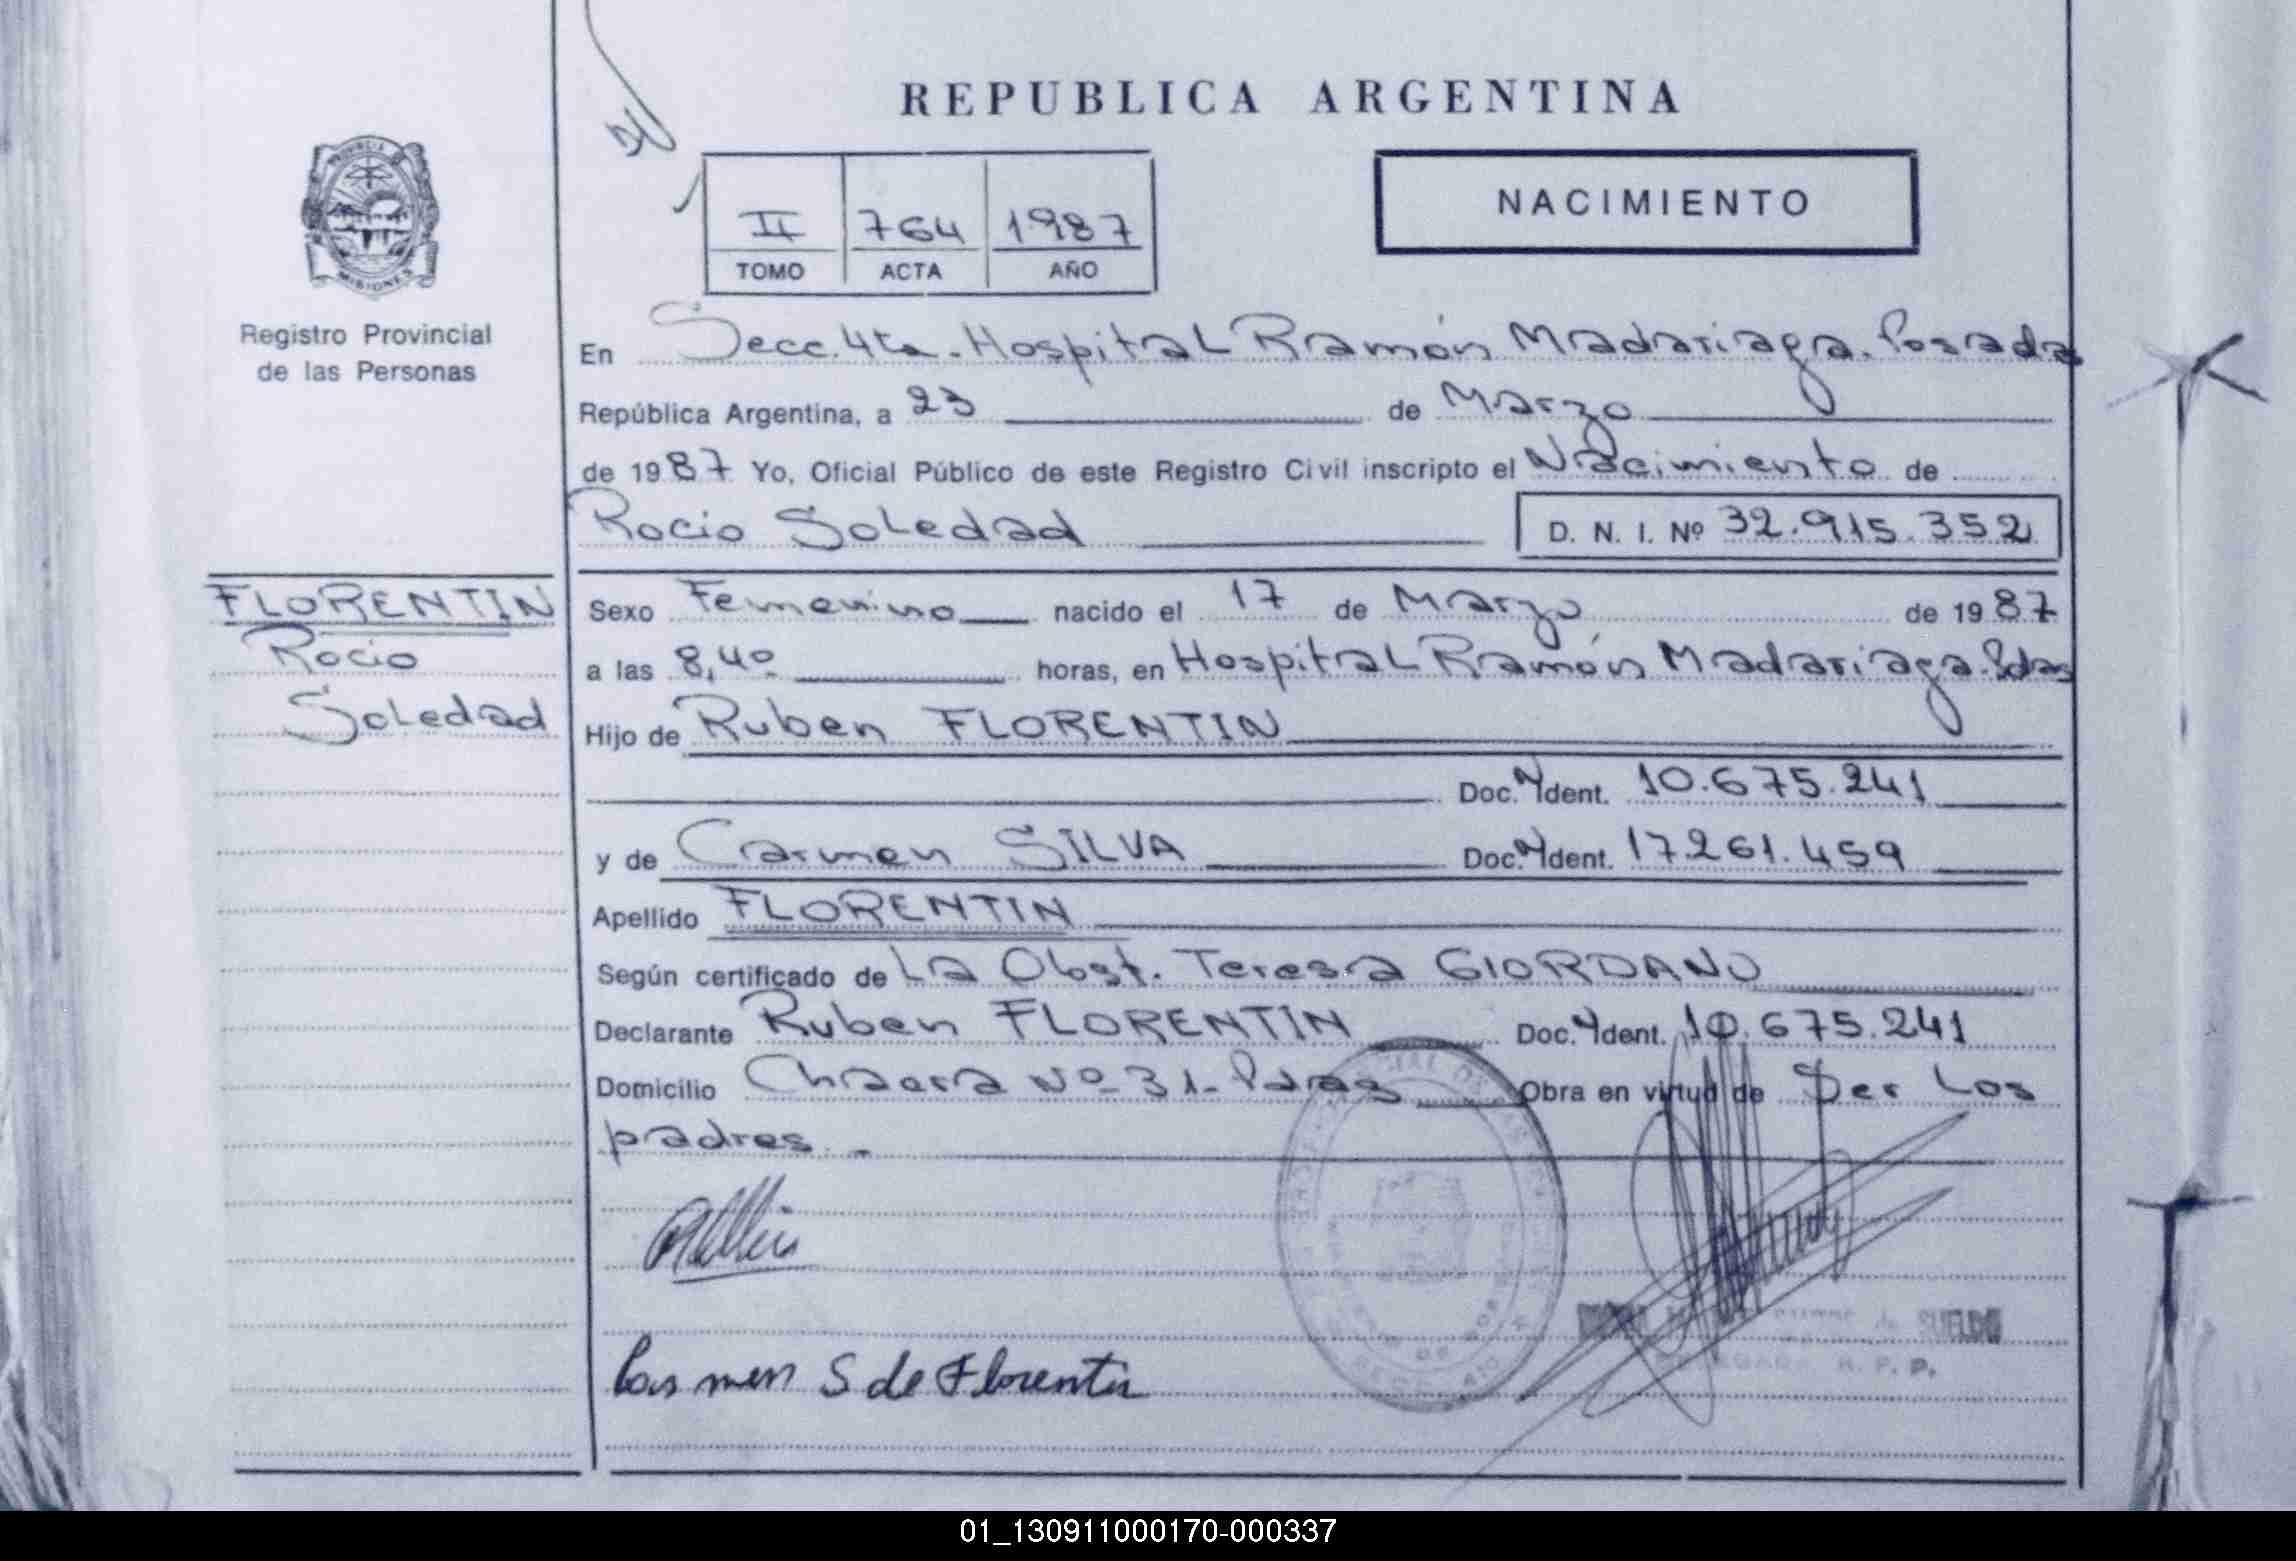 REPUBLICA ARGENTINA
NACIMIENTO
II 764 1987
TOMO ACTA AÑO
PROVINCIA DE
MISIONES
Registro Provincial
de las Personas
FLORENTIN
Rocio
Soledad
En Secc. 4ta. Hospital Ramón Madariaga. Posadas
República Argentina, a 23 de Marzo
de 1987 Yo, Oficial Público de este Registro Civil inscripto el Nacimiento de
Rocio Soledad D. N. I. Nº 32.915.352
Sexo Femenino nacido el 17 de Marzo de 1987
a las 8,40 horas, en Hospital Ramón Madariaga. Pdas
Hijo de Ruben FLORENTIN
Doc. Ident. 10.675.241
y de Carmen SILVA Doc. Ident. 17.261.459
Apellido FLORENTIN
Según certificado de La Obst. Teresa GIORDANO
Declarante Ruben FLORENTIN Doc. Ident. 10.675.241
Domicilio Chacra Nº 31- Pdas Obra en virtud de Ser Los
padres.
Carmen S de Florentin
de SUELDO
R. P. P.
01_130911000170-000337